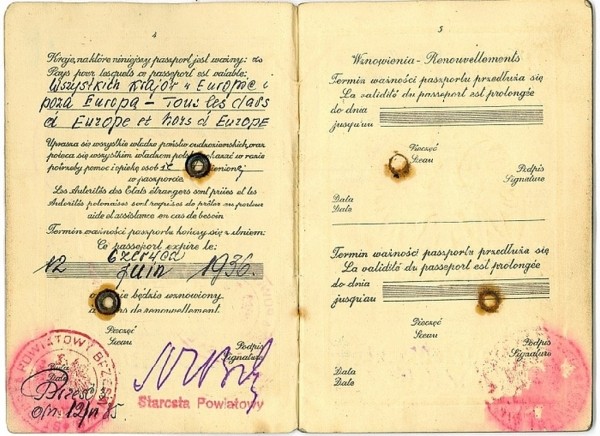 4
Kraje, na które niniejszy paszport jest ważny:
Pays pour lesquels ce passeport est valable:
Wszystkich krajów w Europie i
poza Europą – Tous les
d Europe et hors d Europe
Uprasza się wszystkie władze państw cudzoziemskich, oraz
poleca się wszystkim władzom polskim okazać w razie
potrzeby pomoc i opiekę
w paszporcie.
Les Autorités des Etats étrangers sont priées et les
Autorités polonaises sont requises de prêter au porteur
aide et assistance en cas de besoin
Termin ważności paszportu kończy się z dniem:
Ce passeport expire le:
12 Czerwca
Juin 1936.
będzie wznowiony
de renouvellement.
Pieczęć
Sceau
Podpis
Signature
POWIATOWY
Data
Date
Brześć
12/VI 35
Starosta Powiatowy
5
Wznowienia - Renouvellements
Termin ważności paszportu przedłuża się
La validité du passeport est prolongée
do dnia
jusqu'au
Pieczęć
Sceau
Podpis
Signature
Data
Date
Termin ważności paszportu przedłuża się
La validité du passeport est prolongée
do dnia
jusqu'au
Pieczęć
Sceau
Podpis
Signature
Data
Date